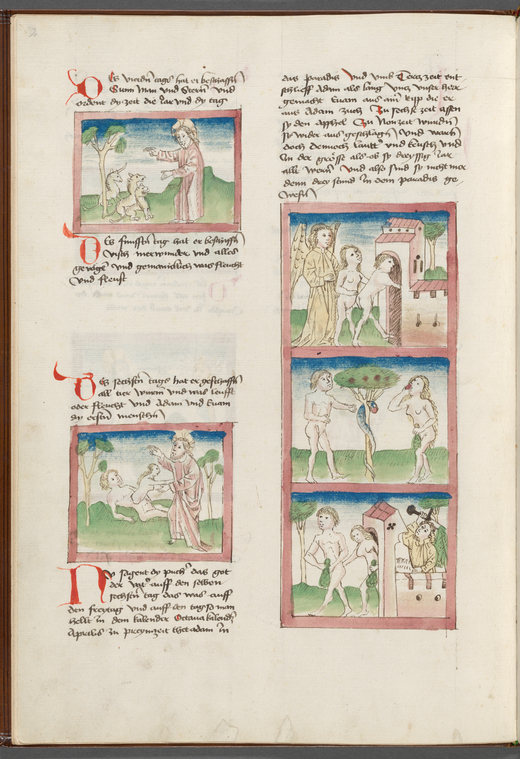 Des vierdn tags hat er beschaffn
Sunn Man vnd Stern vnd
ordent dy zeit die Jar vnd dy tag
Des funfftn tag hat er beschaffn
visch merwunder vnd alles
gevogel vnd gemainklich was fleucht
vnd fleust
Des sechstn tags hat er geschaffn
all tier wurm vnd was leufft
oder kreucht vnd Adam vnd Euam
dy ersten menschn
Nv sagent dy puch das got
der auff den selben
sechstn tag das was auff
den freytag vnd auff den tag so man
hellt in dem kalender Octaua kalend
Aprilis zu preymzeit thet adam in
das paradis vnd vmb Tertzzeit ent
schlieff Adam als lang vntz vnser herr
gemacht Euam aus am ripp die er
aus Adam zuch Zu sechst zeit assen
sy den apphel Zu Nonzeit wurden
sy wider aus geschlagn vnd warn
doch dennoch lautt vnd keusch vnd
in der gröss als ob sy dreyssig Jar
allt wern vnd also sind sy nicht mer
denn drey stund in dem paradis ge
wesn